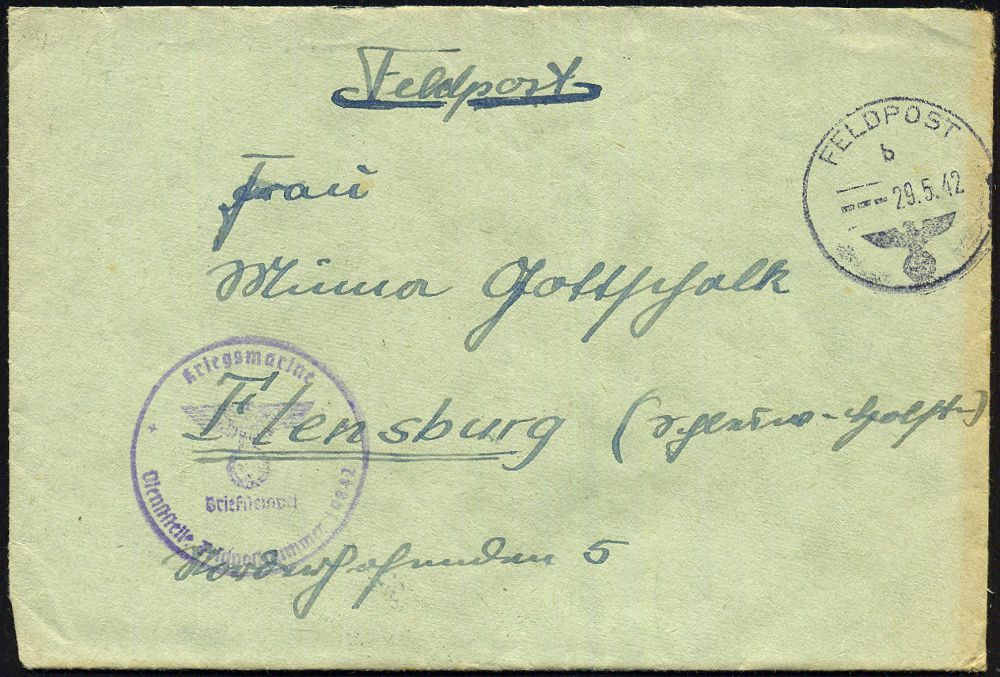 Feldpost
FELDPOST
b
29.5.42
Frau
Minna Gottschalk
Kriegsmarine
Flensburg (Schlesw-Holst-)
Briefstempel
Dienststelle Feldpostnummer
Norderhofenden 5